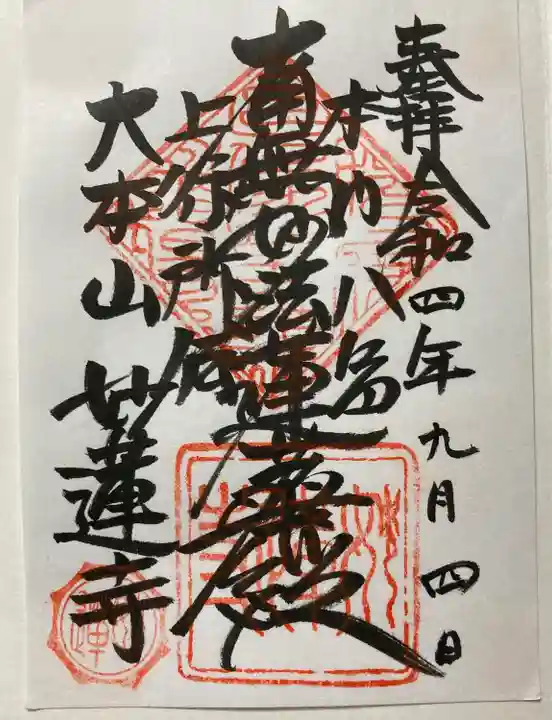 奉拝 令和四年九月四日
本門八品
南無妙法蓮華経
上行所傳
大本山 妙蓮寺